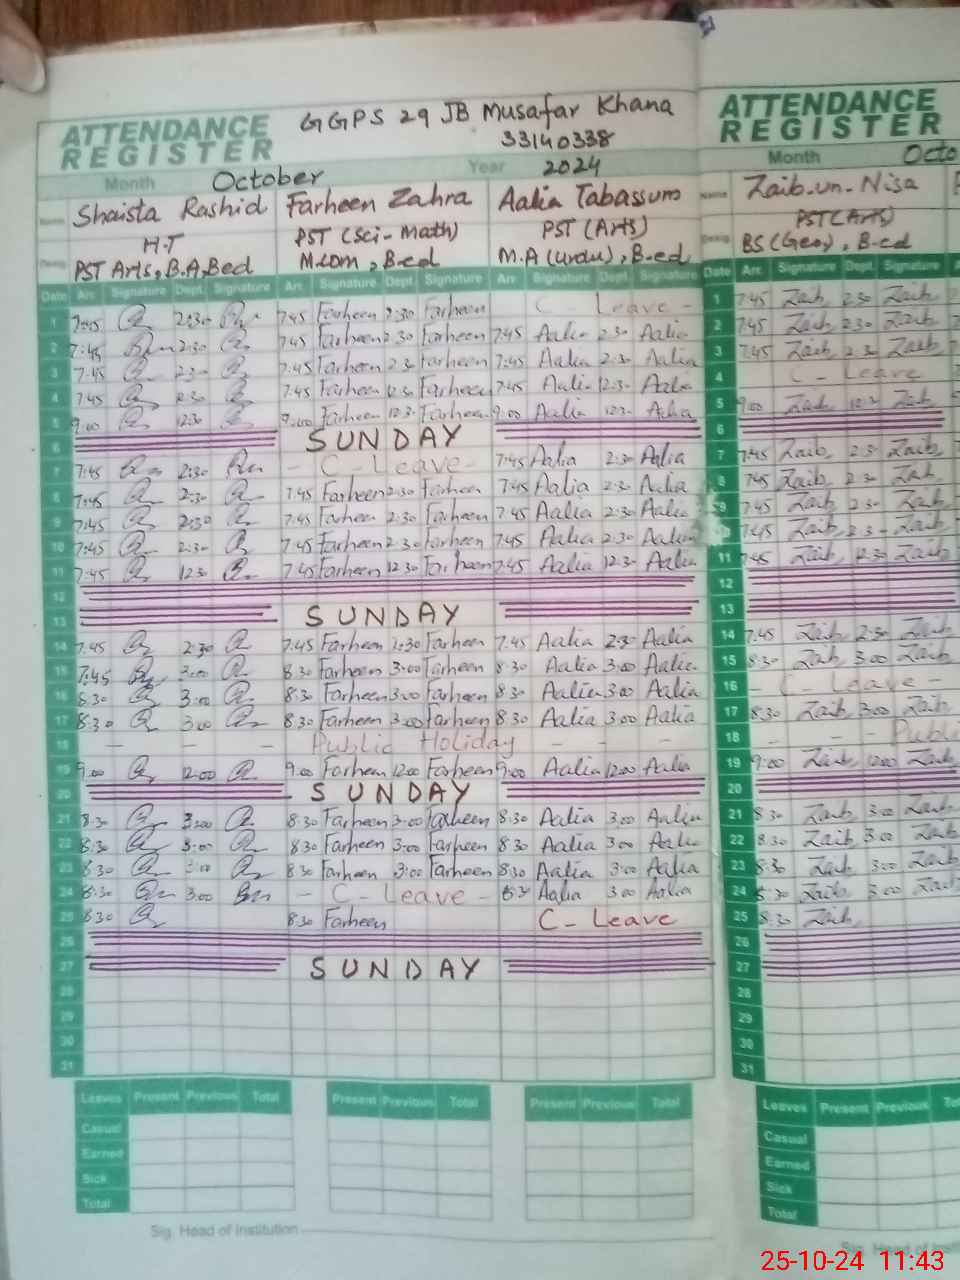 ATTENDANCE REGISTER GGPS 29 JB Musafar Khana
33140338
Month October Year 2024
Name Shaista Rashid Farheen Zahra Aalia Tabassum
H.T PST (Sci-Math) PST (Arts)
Desig. PST Arts, B.A, Bed M.com, B-ed M.A (urdu), B-ed
Date Arr. Signature Dept. Signature Arr. Signature Dept. Signature Arr. Signature Dept. Signature
1 7:45 2:30 7:45 Farheen 2:30 Farheen C - Leave -
2 7:45 2:30 7:45 Farheen 2:30 Farheen 7:45 Aalia 2:30 Aalia
3 7:45 2:30 7:45 Farheen 2:30 Farheen 7:45 Aalia 2:30 Aalia
4 7:45 12:30 7:45 Farheen 12:30 Farheen 7:45 Aalia 12:30 Aalia
5 9:00 12:30 9:00 Farheen 12:30 Farheen 9:00 Aalia 12:30 Aalia
6 SUNDAY
7 7:45 2:30 - C - Leave - 7:45 Aalia 2:30 Aalia
8 7:45 2:30 7:45 Farheen 2:30 Farheen 7:45 Aalia 2:30 Aalia
9 7:45 2:30 7:45 Farheen 2:30 Farheen 7:45 Aalia 2:30 Aalia
10 7:45 2:30 7:45 Farheen 2:30 Farheen 7:45 Aalia 2:30 Aalia
11 7:45 12:30 7:45 Farheen 12:30 Farheen 7:45 Aalia 12:30 Aalia
12
13 SUNDAY
14 7:45 2:30 7:45 Farheen 2:30 Farheen 7:45 Aalia 2:30 Aalia
15 7:45 3:00 8:30 Farheen 3:00 Farheen 8:30 Aalia 3:00 Aalia
16 8:30 3:00 8:30 Farheen 3:00 Farheen 8:30 Aalia 3:00 Aalia
17 8:30 3:00 8:30 Farheen 3:00 Farheen 8:30 Aalia 3:00 Aalia
18 - - - Public Holiday - - -
19 9:00 12:00 9:00 Farheen 12:00 Farheen 9:00 Aalia 12:00 Aalia
20 SUNDAY
21 8:30 3:00 8:30 Farheen 3:00 Farheen 8:30 Aalia 3:00 Aalia
22 8:30 3:00 8:30 Farheen 3:00 Farheen 8:30 Aalia 3:00 Aalia
23 8:30 3:00 8:30 Farheen 3:00 Farheen 8:30 Aalia 3:00 Aalia
24 8:30 3:00 - C - Leave - 8:30 Aalia 3:00 Aalia
25 8:30 8:30 Farheen C - Leave
26
27 SUNDAY
28
29
30
31
Leaves Present Previous Total Present Previous Total Present Previous Total
Casual
Earned
Sick
Total
Sig. Head of Institution
ATTENDANCE REGISTER
Month Octo
Name Zaib-un-Nisa
PST (Arts)
Desig. BS (Geo), B-ed
Date Arr. Signature Dept. Signature
1 7:45 Zaib 2:30 Zaib
2 7:45 Zaib 2:30 Zaib
3 7:45 Zaib 2:30 Zaib
4 C - Leave
5 9:00 Zaib 12:30 Zaib
6
7 7:45 Zaib 2:30 Zaib
8 7:45 Zaib 2:30 Zaib
9 7:45 Zaib 2:30 Zaib
7:45 Zaib 2:30 Zaib
11 7:45 Zaib 12:30 Zaib
12
13
14 7:45 Zaib 2:30 Zaib
15 8:30 Zaib 3:00 Zaib
16 - C - Leave -
17 8:30 Zaib 3:00 Zaib
18 - - - Publi
19 9:00 Zaib 12:00 Zaib
20
21 8:30 Zaib 3:00 Zaib
22 8:30 Zaib 3:00 Zaib
23 8:30 Zaib 3:00 Zaib
24 8:30 Zaib 3:00 Zaib
25 8:30 Zaib
26
27
28
29
30
31
Leaves Present Previous To
Casual
Earned
Sick
Total
Sig. Head of Insti
25-10-24 11:43